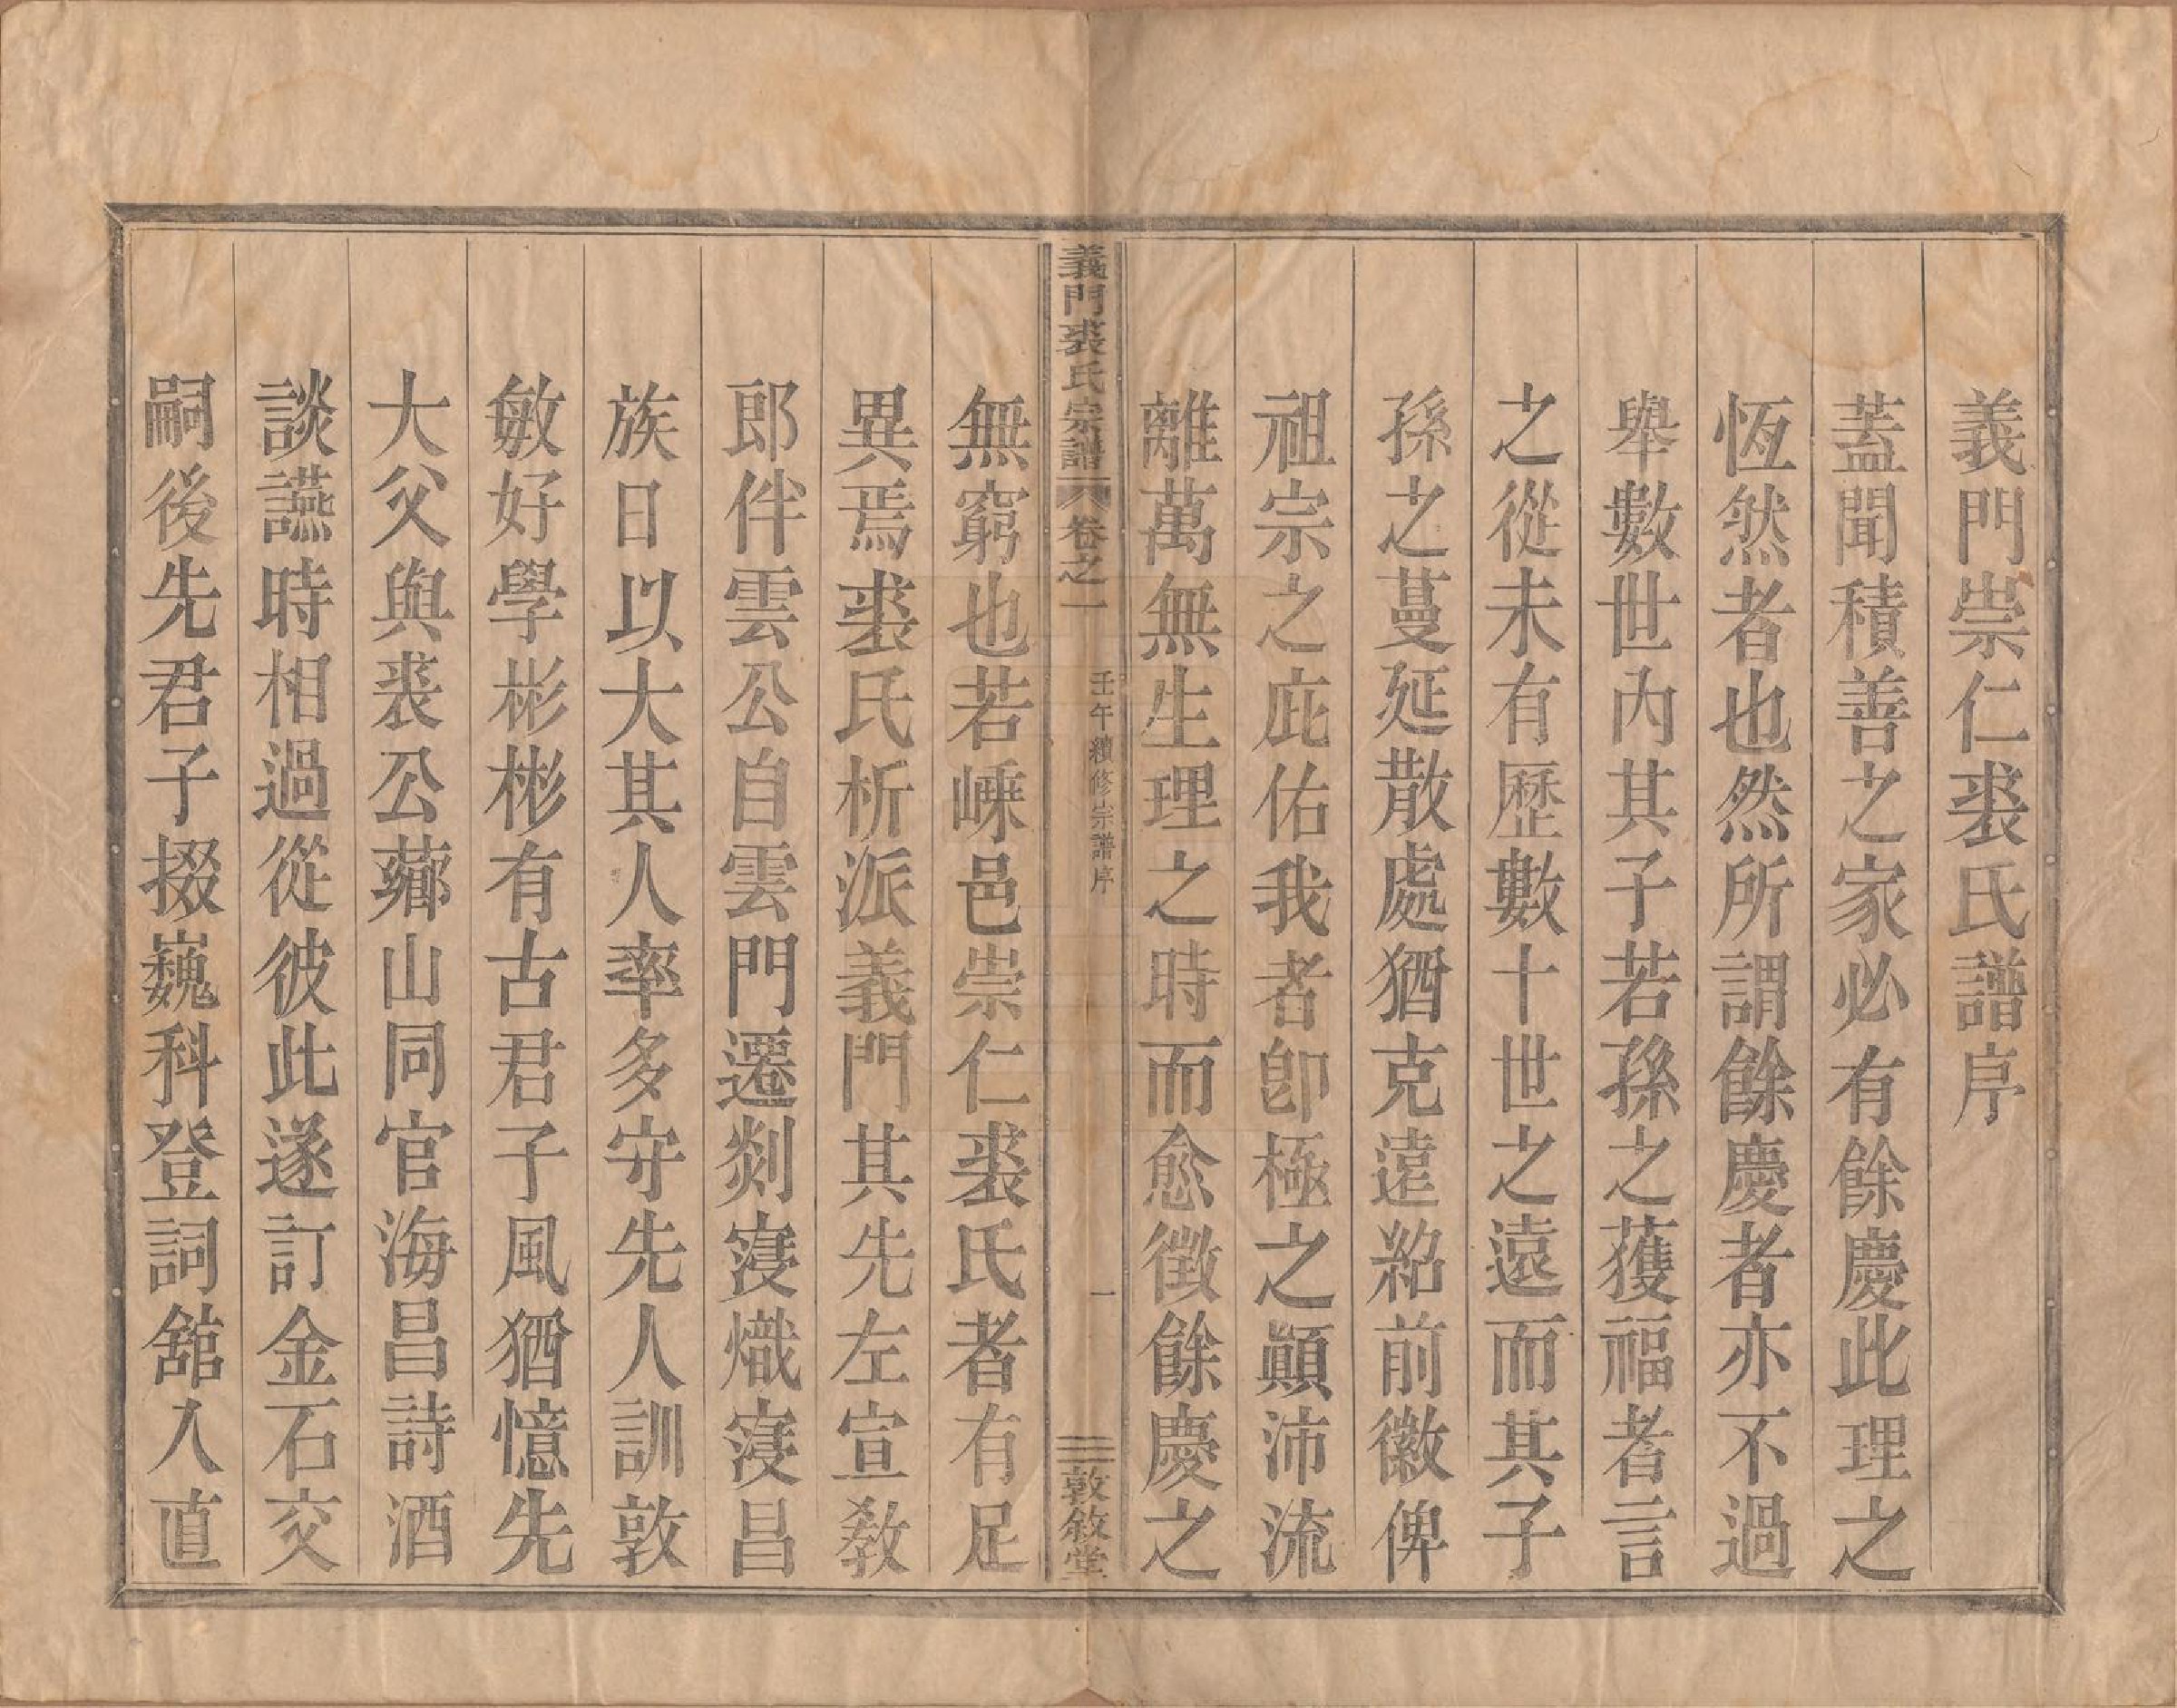 義門崇仁裘氏譜序
蓋聞積善之家必有餘慶此理之
恆然者也然所謂餘慶者亦不過
舉數世內其子若孫之獲福者言
之從未有歷數十世之遠而其子
孫之蔓延散處猶克遠紹前徽俾
祖宗之庇佑我者卽極之顚沛流
離萬無生理之時而愈徵餘慶之
義門裘氏宗譜 卷之一 壬午續修宗譜序 一 敦敘堂
無窮也若嵊邑崇仁裘氏者有足
異焉裘氏析派義門其先左宣教
郎伴雲公自雲門遷剡寖熾寖昌
族日以大其人率多守先人訓敦
敏好學彬彬有古君子風猶憶先
大父與裘公薌山同官海昌詩酒
談讌時相過從彼此遂訂金石交
嗣後先君子掇巍科登詞館入直